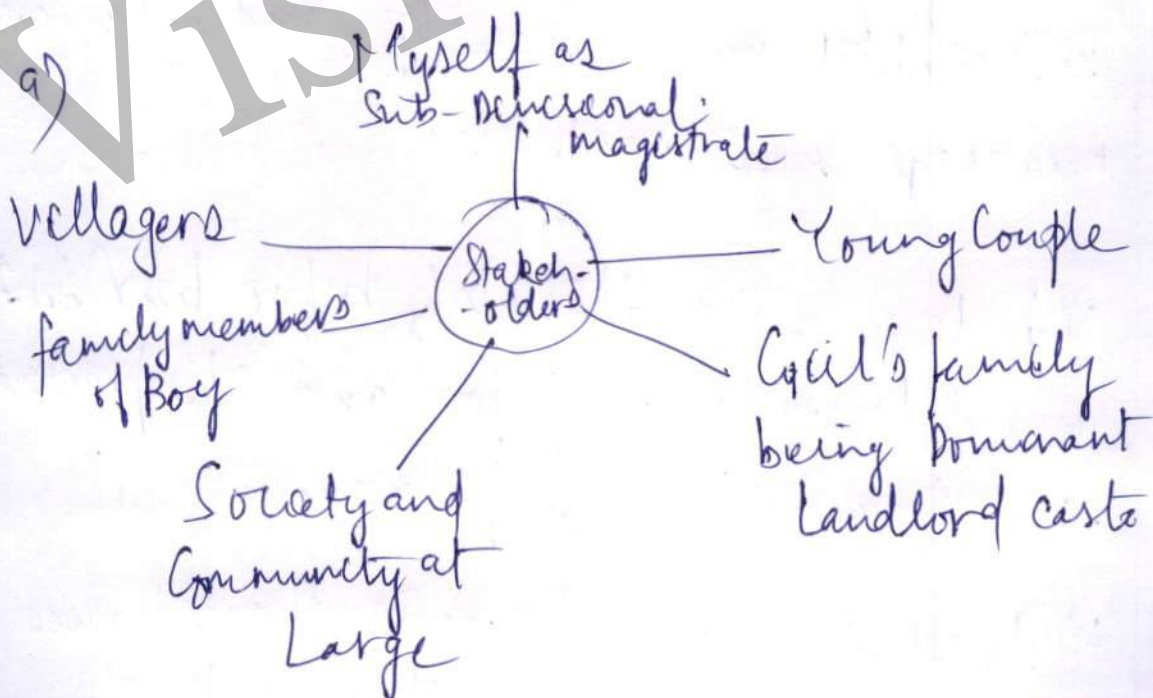 a)
Myself as
Sub-Divisional
magistrate
Villagers
Stakeh-
-olders
Young Couple
family members
of Boy
Girl's family
being Dominant
Landlord caste
Society and
Community at
Large